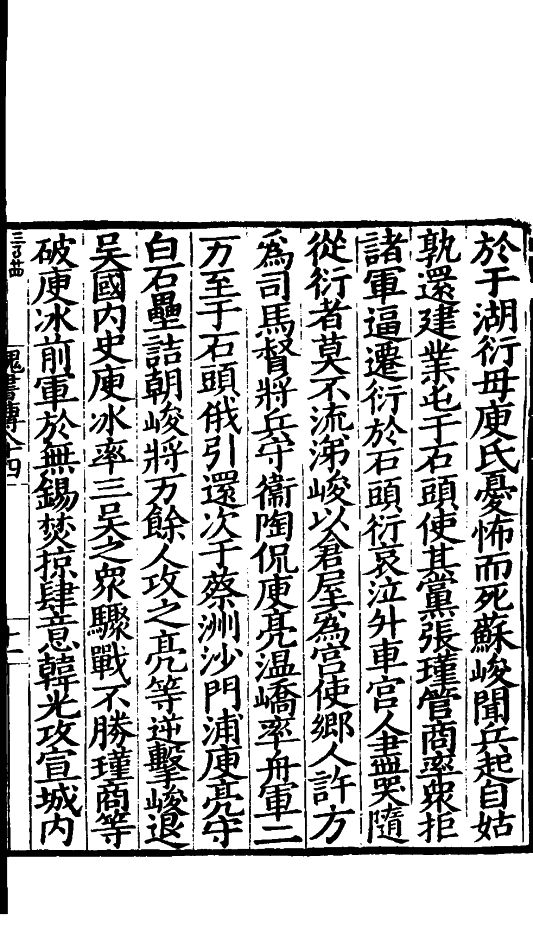 於于湖衍母庾氏憂怖而死蘇峻聞兵起自姑
孰還建業屯于石頭使其黨張瑾管商率衆拒
諸軍逼遷衍於石頭衍哀泣升車宮人盡哭隨
從衍者莫不流涕峻以倉屋爲宮使鄉人許方
爲司馬督將兵守衞陶侃庾亮温嶠率舟軍二
万至于石頭俄引還次于蔡洲沙門浦庾亮守
白石壘詰朝峻將万餘人攻之亮等逆擊峻退
吴國内史庾冰率三吴之衆驟戰不勝瑾商等
破庾冰前軍於無錫焚掠肆意韓光攻宣城内
魏書傳八十四